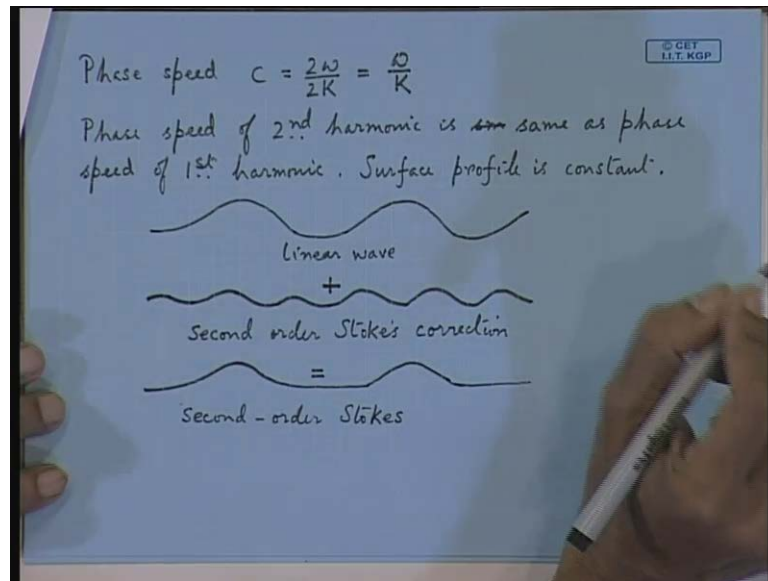 © CET
I.I.T. KGP
Phase speed C = 2ω/2K = ω/K
Phase speed of 2nd harmonic is same as phase
speed of 1st harmonic. Surface profile is constant.
linear wave
+
Second order Stoke's correction
=
Second-order Stokes